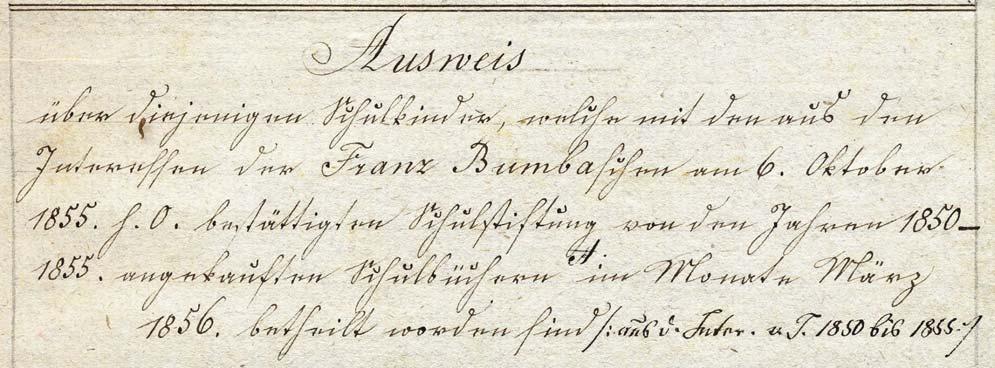 Ausweis
über diejenigen Schulkinder, welche mit den aus den
Interessen der Franz Bumbaschen am 6. Oktober
1855. h. O. bestättigten Schulstiftung von den Jahren 1850–
1855. angekauften Schulbüchern im Monate März
1856. betheilt worden sind /: aus d. Inter. v. J. 1850 bis 1855 :/